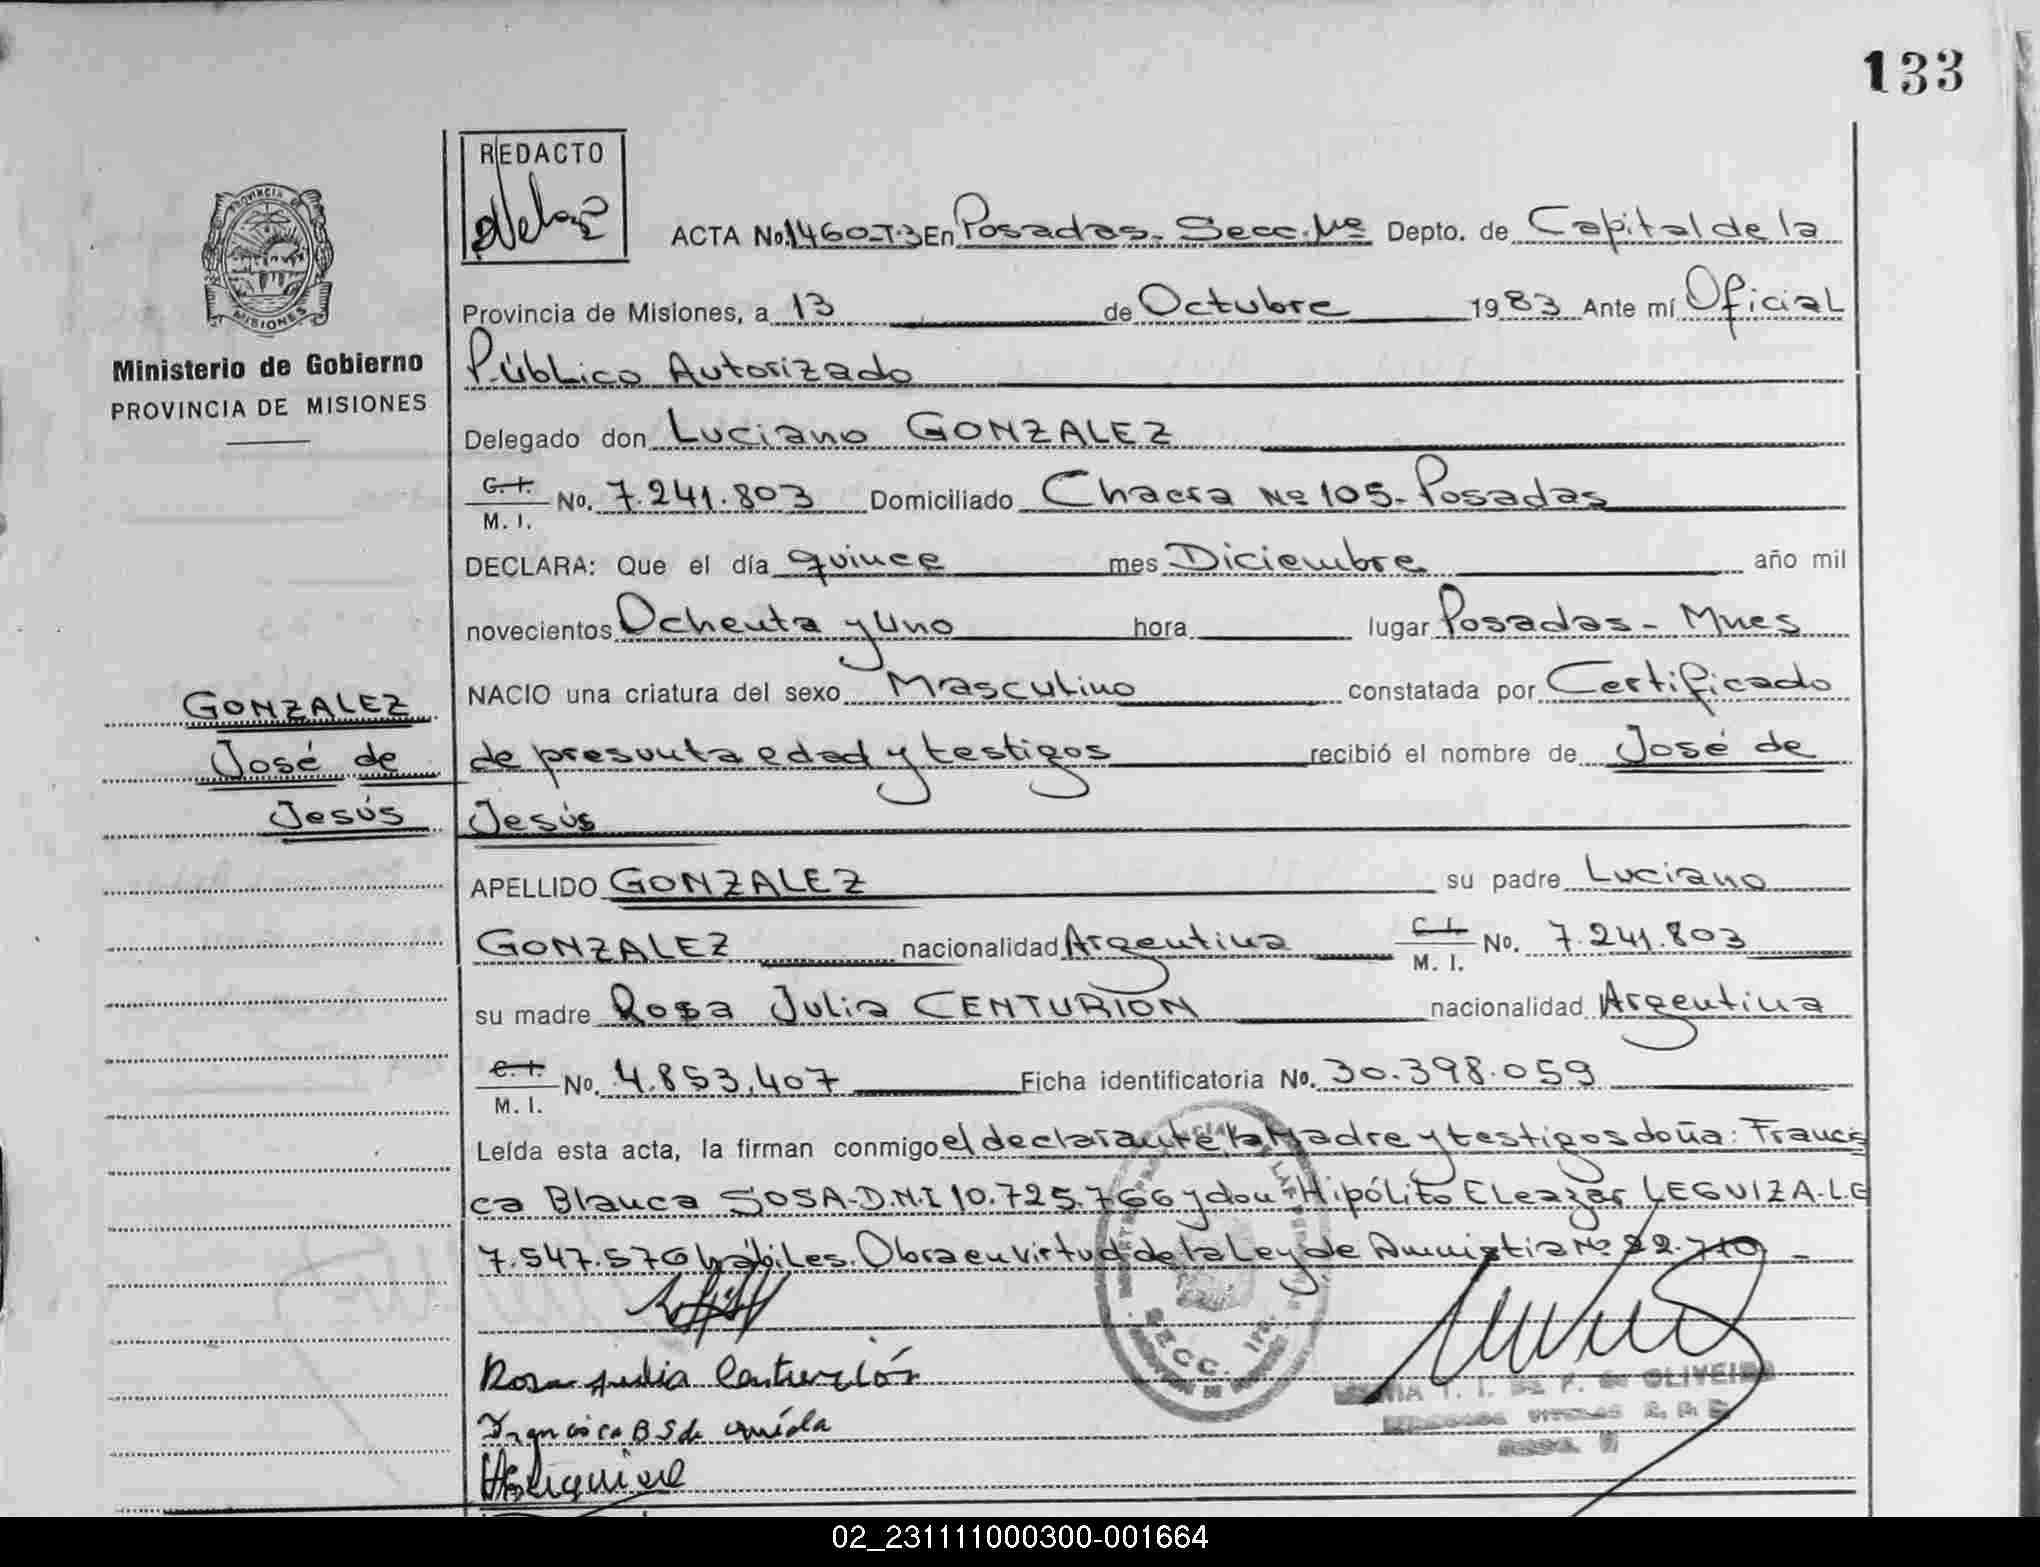 133
REDACTO
PROVINCIA DE
MISIONES
ACTA No. 1460-T3 En Posadas. Secc. 1ra Depto. de Capital de la
Provincia de Misiones, a 13 de Octubre 1983 Ante mí Oficial
Ministerio de Gobierno
PROVINCIA DE MISIONES
Público Autorizado
Delegado don Luciano GONZALEZ
C. I. M. I. No. 7.241.803 Domiciliado Chacra Nº 105-Posadas
DECLARA: Que el día quince mes Diciembre año mil
novecientos Ochenta y Uno hora lugar Posadas - Mnes
NACIO una criatura del sexo Masculino constatada por Certificado
GONZALEZ
José de
Jesús
de presunta edad y testigos recibió el nombre de José de
Jesús
APELLIDO GONZALEZ su padre Luciano
GONZALEZ nacionalidad Argentina C. I. M. I. No. 7.241.803
su madre Rosa Julia CENTURION nacionalidad Argentina
C. I. M. I. No. 4.853.407 Ficha identificatoria No. 30.398.059
Leída esta acta, la firman conmigo el declarante la Madre y testigos doña: Francis
ca Blanca SOSA-D.N.I 10.725.766 y don Hipólito Eleazar LEGUIZA-L.E
7.547.576 hábiles. Obra en virtud de la Ley de Amnistia Nº 22.710 -
Rosa Julia Centurión
Francisca B S de
SECC. 1ra.
OLIVEIRA
02_231111000300-001664